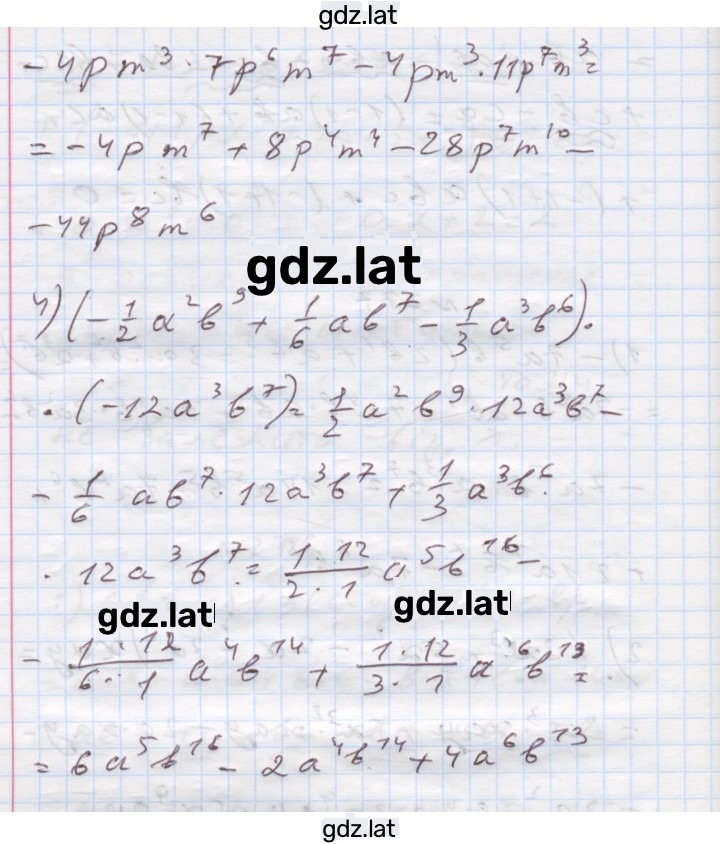 gdz.lat
-4pm³ · 7p⁶m⁷ - 4pm³ · 11p⁷m³ =
= -4pm⁷ + 8p⁴m⁴ - 28p⁷m¹⁰ -
-44p⁸m⁶
gdz.lat
4) (-1/2 a²b⁹ + 1/6 ab⁷ - 1/3 a³b⁶) ·
· (-12a³b⁷) = 1/2 a²b⁹ · 12a³b⁷ -
- 1/6 ab⁷ · 12a³b⁷ + 1/3 a³b⁶ ·
· 12a³b⁷ = (1·12)/(2·1) a⁵b¹⁶ -
gdz.lat gdz.lat
- (1·12)/(6·1) a⁴b¹⁴ + (1·12)/(3·1) a⁶b¹³ =
= 6a⁵b¹⁶ - 2a⁴b¹⁴ + 4a⁶b¹³
gdz.lat